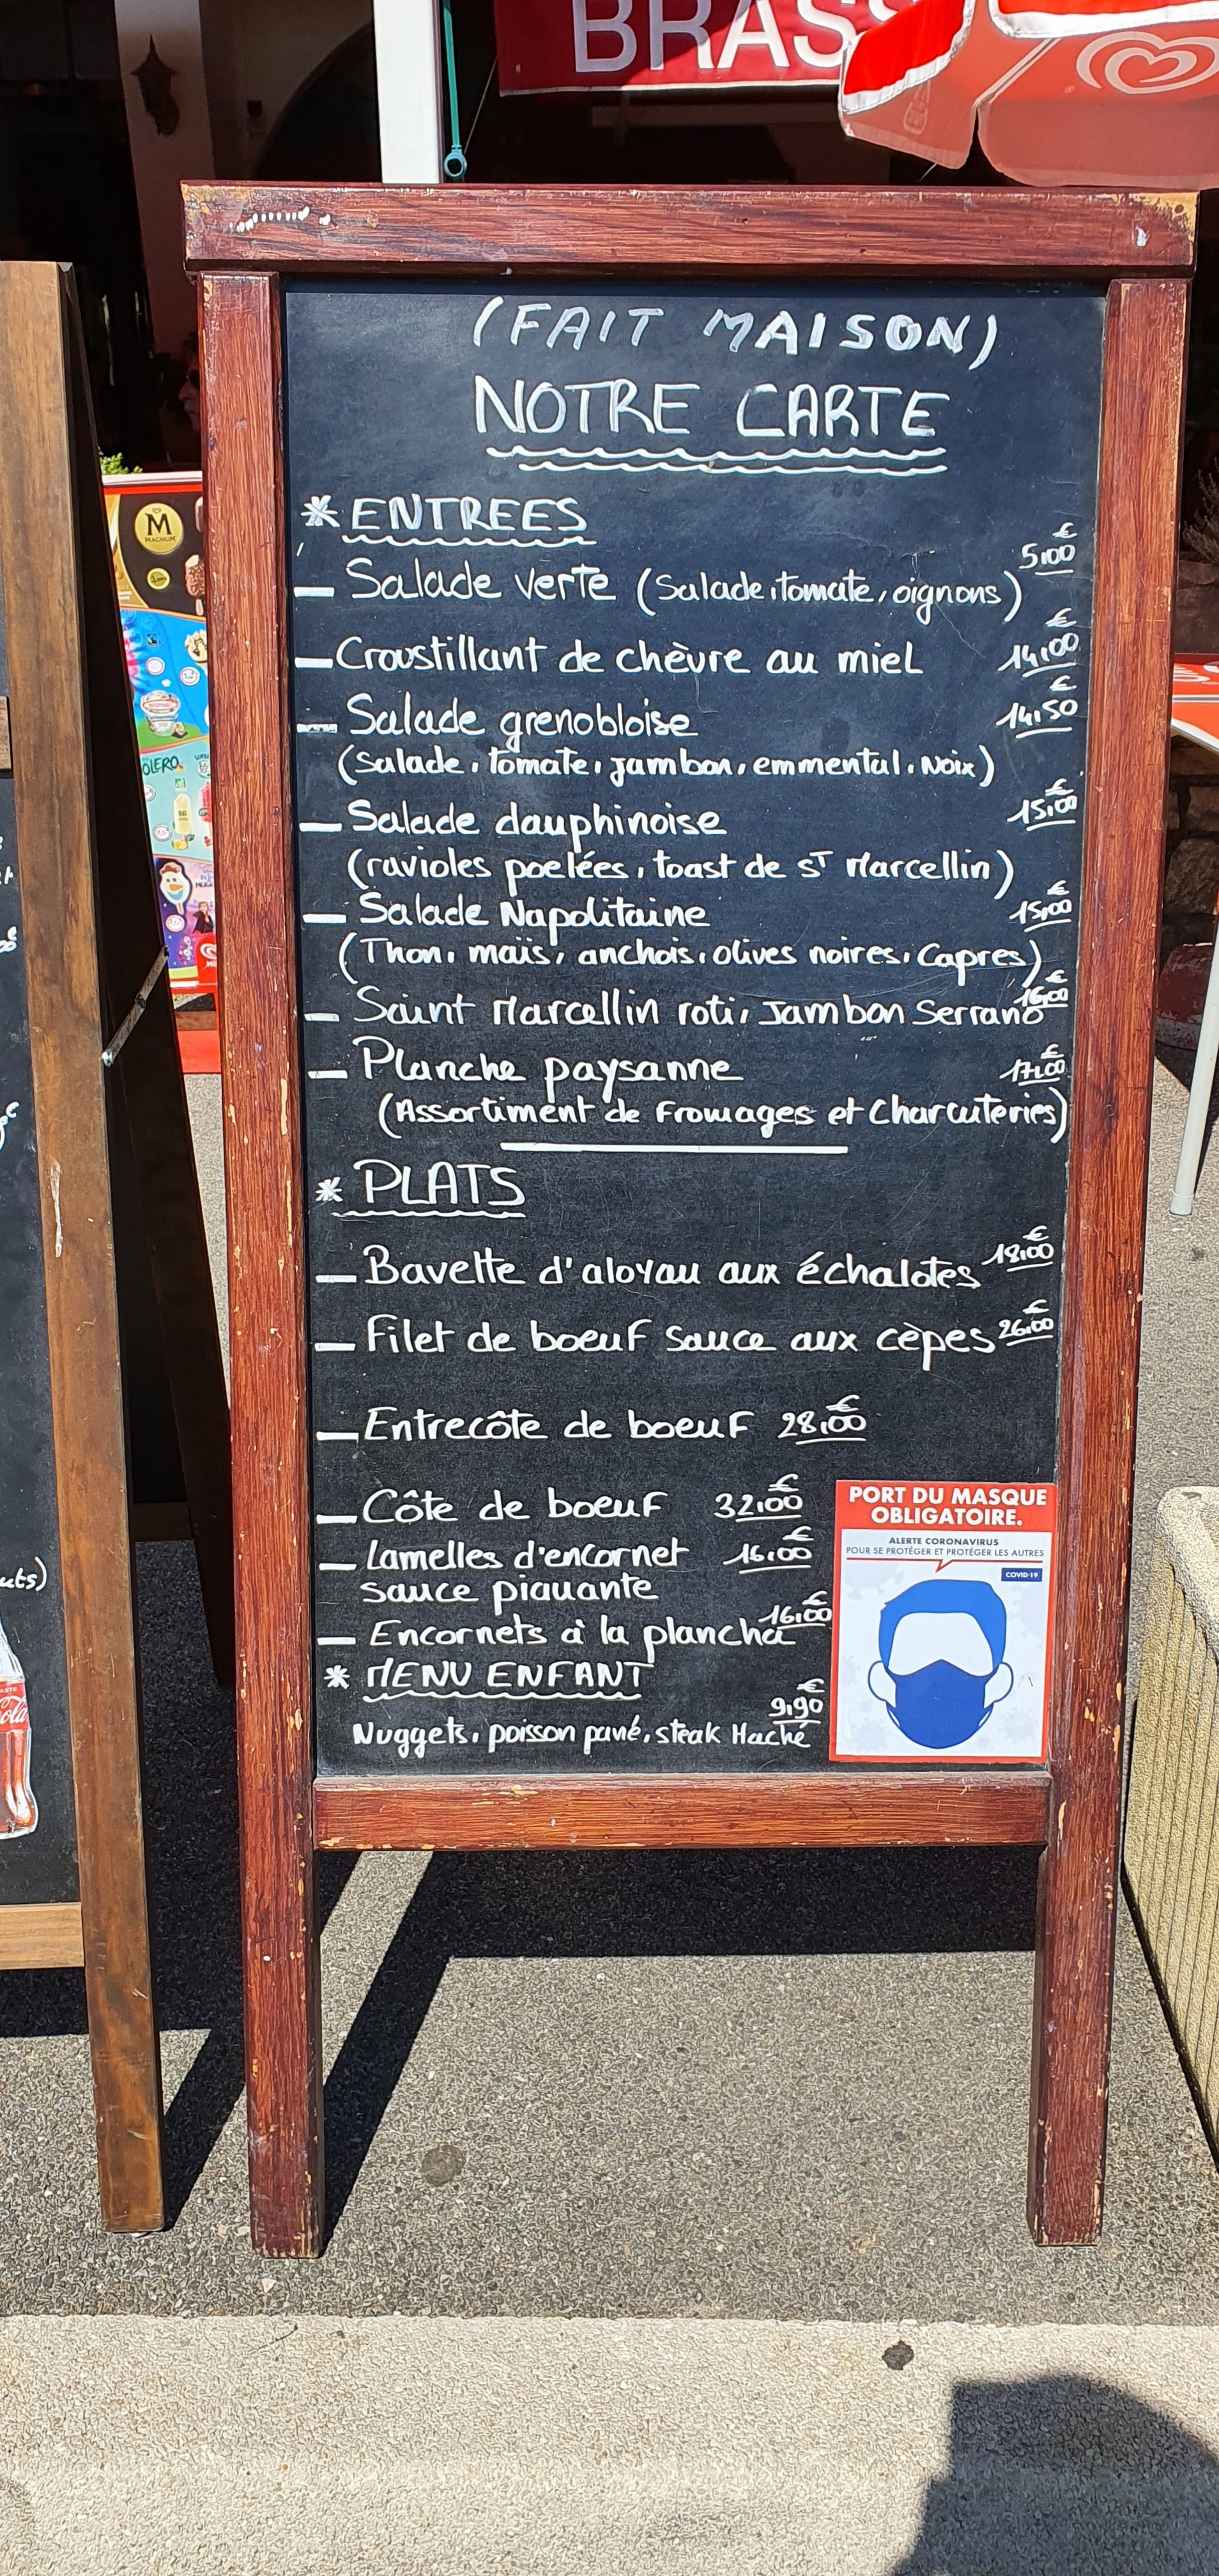 BRASS
(FAIT MAISON)
NOTRE CARTE
* ENTREES
— Salade verte (Salade, tomate, oignons) 5,00€
— Croustillant de chèvre au miel 14,00€
— Salade grenobloise 14,50€
(Salade, tomate, jambon, emmental, Noix)
— Salade dauphinoise 15,00€
(ravioles poelées, toast de sT Marcellin)
— Salade Napolitaine 15,00€
(Thon, maïs, anchois, olives noires, Capres)
— Saint Marcellin roti, Jambon Serrano 16,00€
— Planche paysanne 17,00€
(Assortiment de Fromages et Charcuteries)
* PLATS
— Bavette d'aloyau aux échalotes 18,00€
— Filet de boeuf sauce aux cèpes 26,00€
— Entrecôte de boeuf 28,00€
— Côte de boeuf 32,00€
— Lamelles d'encornet 16,00€
sauce piquante
— Encornets à la plancha 16,00€
* MENU ENFANT
9,90€
Nuggets, poisson pané, steak Haché
PORT DU MASQUE
OBLIGATOIRE.
ALERTE CORONAVIRUS
POUR SE PROTÉGER ET PROTÉGER LES AUTRES
COVID-19
M
MAGNUM
OLERO
uts)
ola